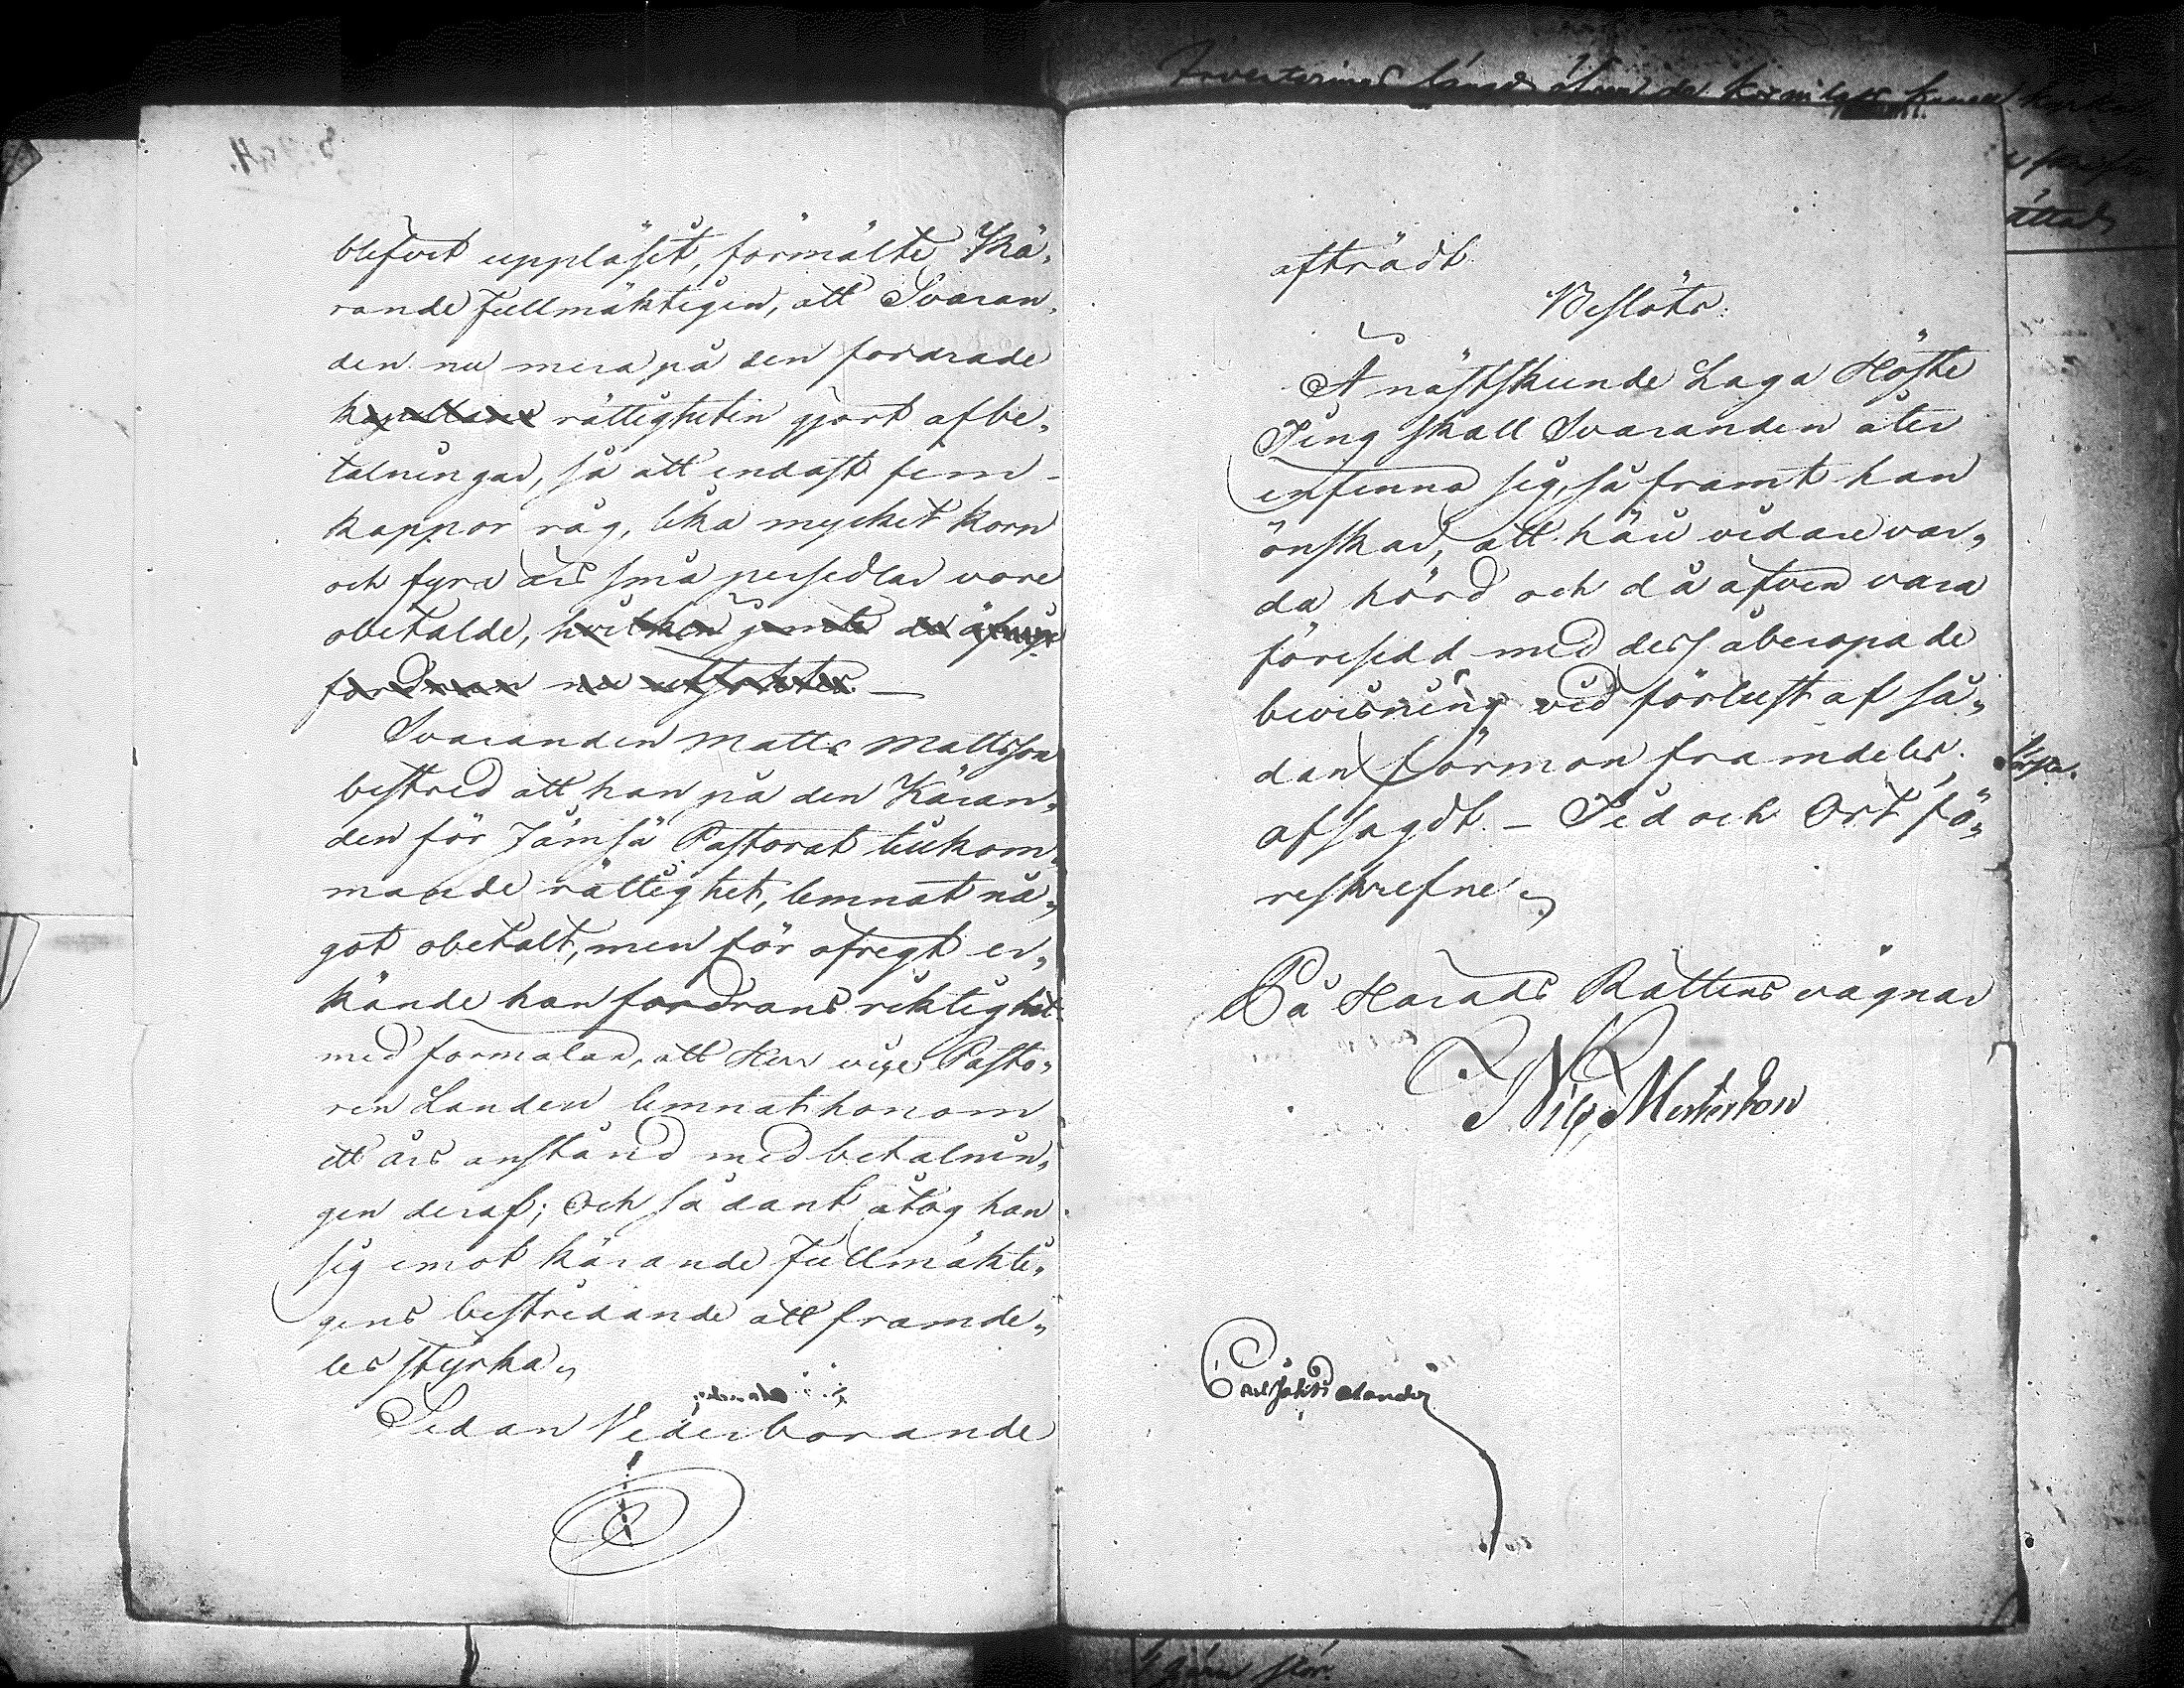 blifvit uppläsit, förmälte Kä,
rande Fullmäktigen, att Svaran,
den nu mera på den fordrade
kapellans rättigheten gjort afbe,
talningar, så att endast fem
kappor råg, lika mycket korn
och fyra års små persedlar vore
obetalde, hvilken jemte den öfrige
fordran nu
Svaranden Matts Mattsson
bestred att han på den Käran,
den för Jämsä Pastorat tillkom,
mande rättighet, lemnat nå,
got obetalt, men för öfregt er,
kände han fordrans riktighet
med förmälan, att Herr vice Pasto,
ren Landen lemnat honom
ett års anstånd med betalnin,
gen deraf; Och sådant åtog han
sig emot Kärande Fullmäkti,
gens bestridande att framde,
les styrka,
Sedan Vederbörande
afträdt
Beslöts:
Å nästskunde Laga Höste
Ting skall Svaranden åter
infinna sig, så framt han
önskar, att häri vidare var,
da hörd och då äfven vara
försedd med dess åberopade
bevisning vid förlust af så,
dan förmon framdeles,
afsagdt. – Tid och Ort fö,
reskrefne,
På Härads Rättens vägnar